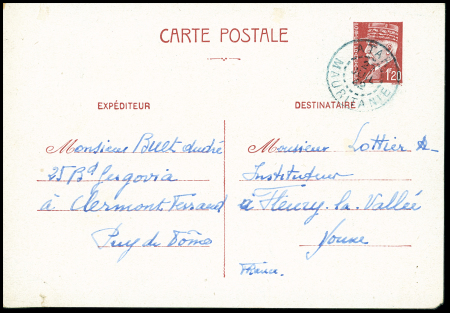 CARTE POSTALE
ATAR
MAURITANIE
1,20
EXPÉDITEUR
DESTINATAIRE
Monsieur Bult André
25 Bd Gergovia
à Clermont Ferrand
Puy de Dôme
Monsieur Lottier A
Instituteur
à Fleury-la-Vallée
Yonne
France.